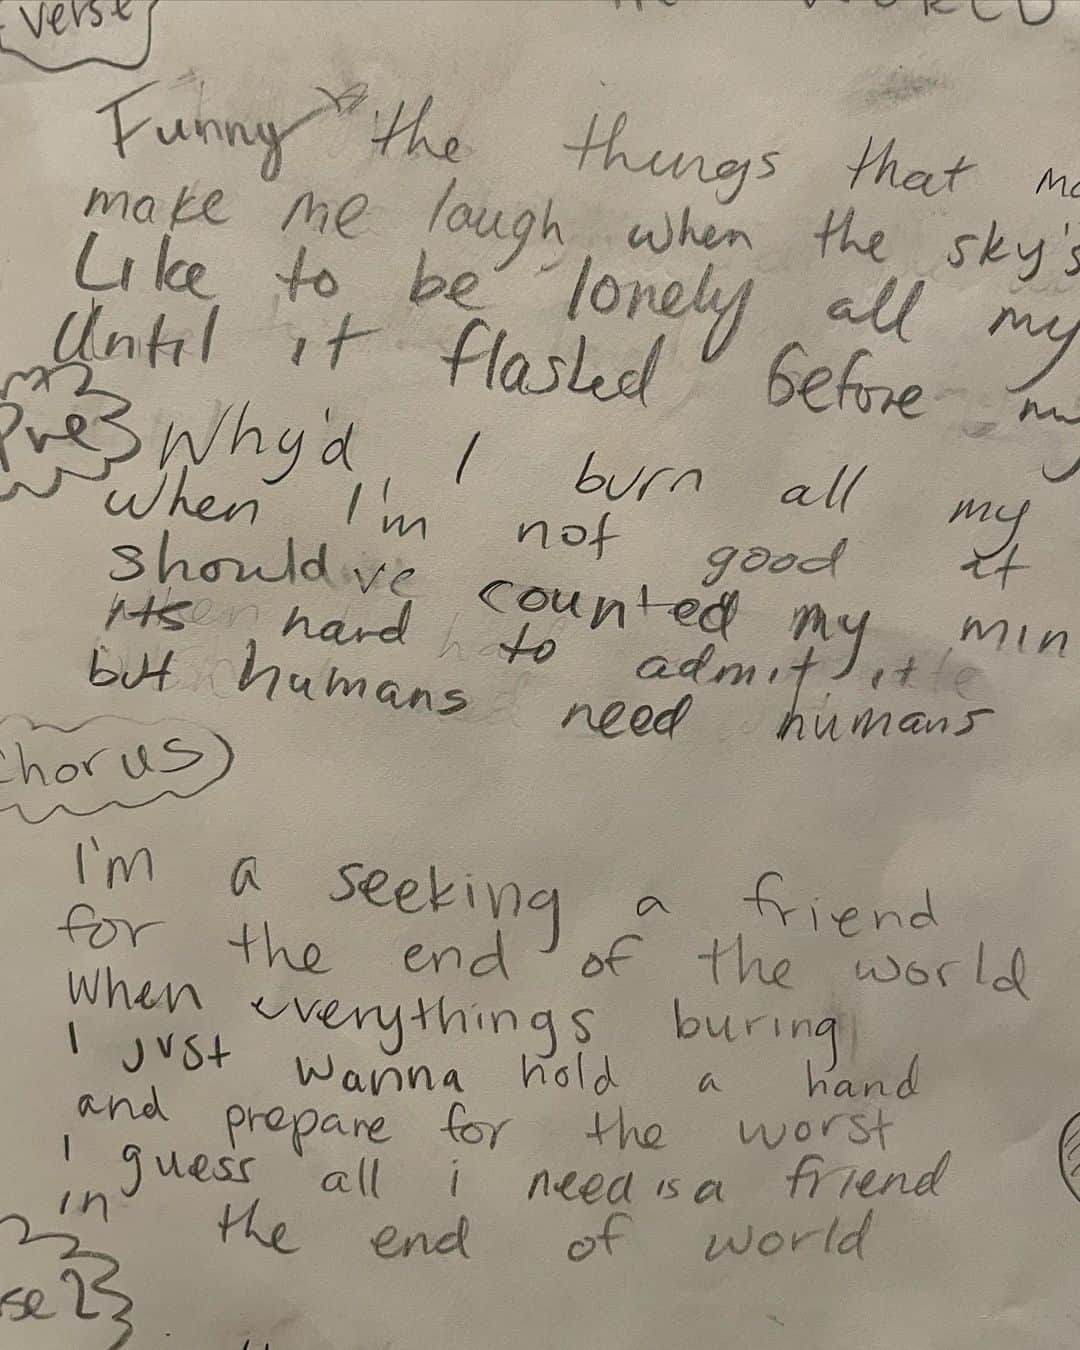 verse
WORLD
Funny the things that ma
make me laugh when the sky's
Like to be lonely all my
Until it flashed before my
Pre
Why'd I burn all my
when I'm not good at
should've counted my min
its hard to admit it
but humans need humans
Chorus
I'm a seeking a friend
for the end of the world
When everythings buring
I just wanna hold a hand
and prepare for the worst
I guess all i need is a friend
in the end of world
se 2